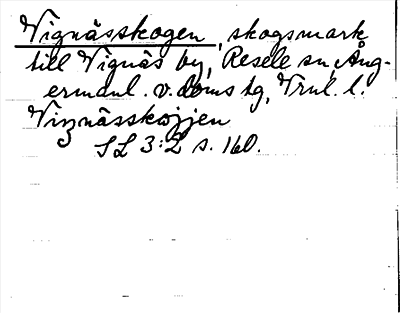 Vignässkogen, skogsmark
till Vignäs by, Resele sn, Ång-
ermanl. v. doms tg, Vrnl. l.
Vingnässkojjen
SL 3:2 s. 160.